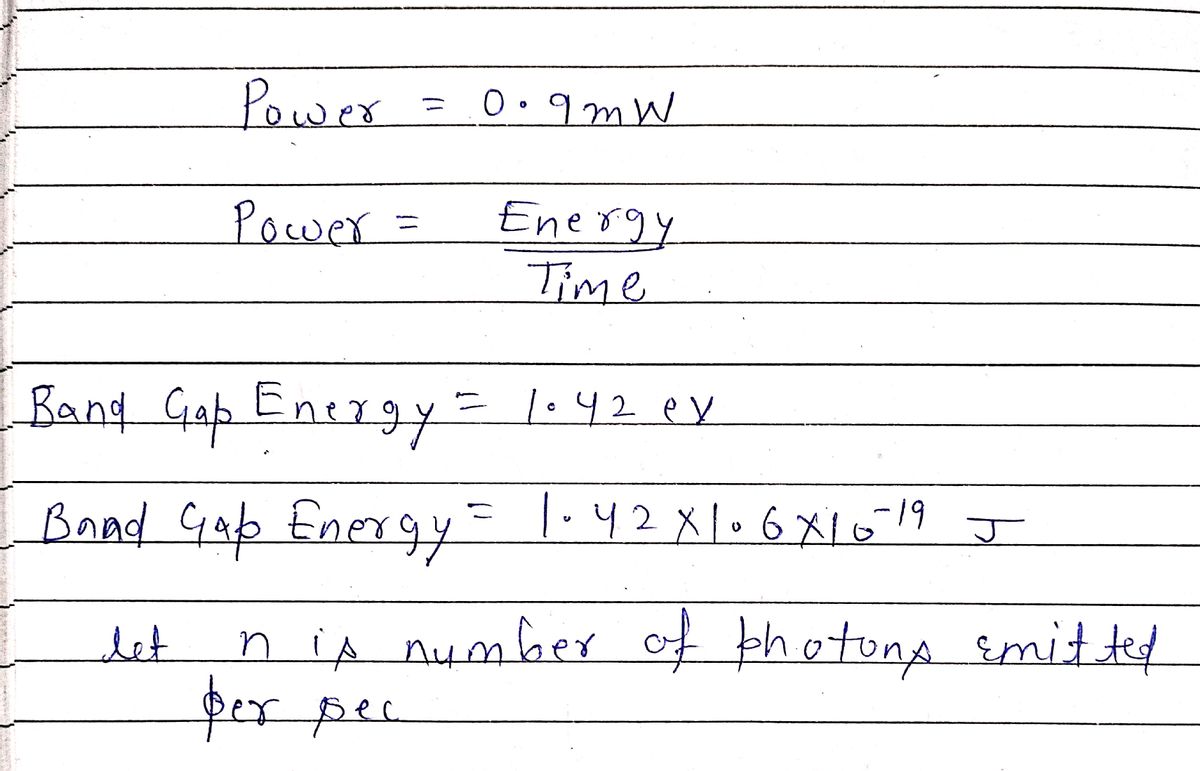 Power = 0.9mW
Power = Energy
Time
Band Gap Energy = 1.42 eV
Band Gap Energy = 1.42 X 1.6 X 10-19 J
let n is number of photons emitted
per sec